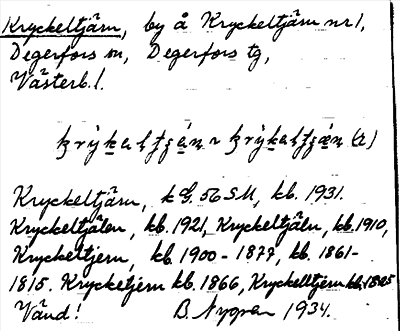 Kryckeltjärn, by å Kryckeltjärn nr 1,
Degerfors sn, Degerfors tg,
Västerb. l.
Kryckeltjärn, k G. 56 SU, kb. 1931.
Kryckeltjälen, kb. 1921, Kryckeltjäln, kb. 1910,
Kryckeltjern, kb. 1900-1877, kb. 1861-
1815. Krycketjern kb. 1866, Kryckelltjern kb. 1825
Vänd! B. Nygren 1934.